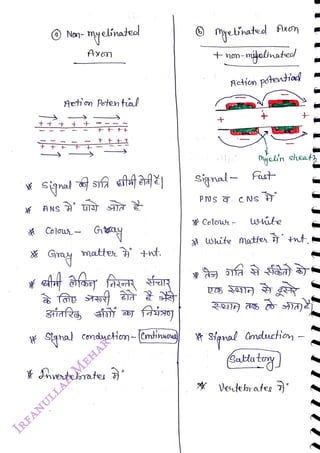 ⓐ Non-myelinated
Axon
Action Potential
+ + + + - - - -
- - - - + + + +
- - - - + + + +
+ + + + - - - -
* Signal की गति धीमी होती है।
* ANS में पाये जाते हैं
* Colour - Gray
* Gray matter में +nt.
* धीमी लेकिन निरन्तर संचार
के लिए जरूरी होते हैं जैसे
आंतरिक अंगों का नियंत्रण
* Signal conduction - Continuous
* Invertebrates में
ⓑ Myelinated Axon
+ non-myelinated
Action potential
+ + +
- -
+ + +
Myelin sheath
Signal - Fast
PNS व CNS में
* Colour - White
* White matter में +nt.
* तेज गति से संकेतो को
एक स्थान से दूसरे
स्थान तक ले जाता है
* Signal Conduction -
Saltatory
* Vertebrates में
IRFANULLAH MEHAR